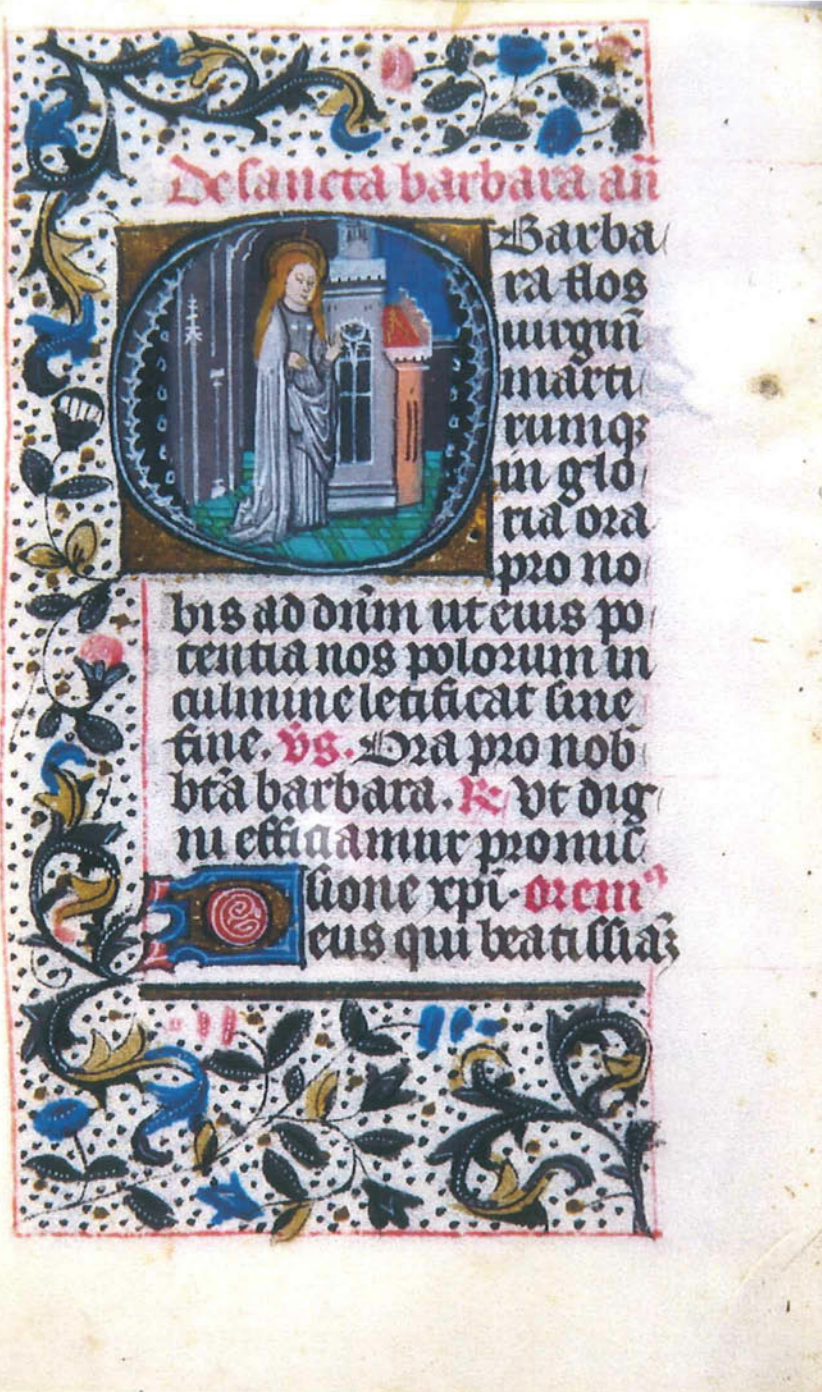 De sancta barbara añ
Barba
ra flos
uirguñ
marti
rumq3
in glo
ria ora
pro no
bis ad dñm ut eius po
tentia nos polorum in
culmine letificat sine
fine. v̄s. Ora pro nob
btā barbara. R: Vt dig
ni efficiamur promis
sione xpī. orem9
Deus qui beatissiā3